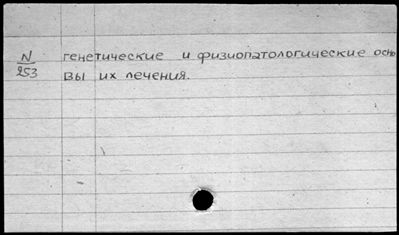 N генетические и физиопатологические осно
253 вы их лечения.